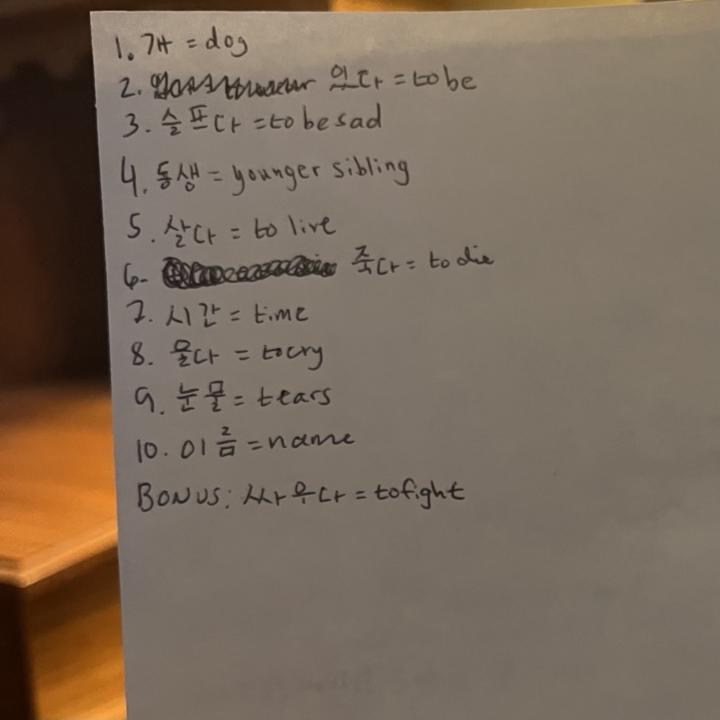 1. 개 = dog
2. 있다 = to be
3. 슬프다 = to be sad
4. 동생 = younger sibling
5. 살다 = to live
6- 죽다 = to die
7. 시간 = time
8. 울다 = to cry
9. 눈물 = tears
10. 이름 = name
BONUS: 싸우다 = to fight